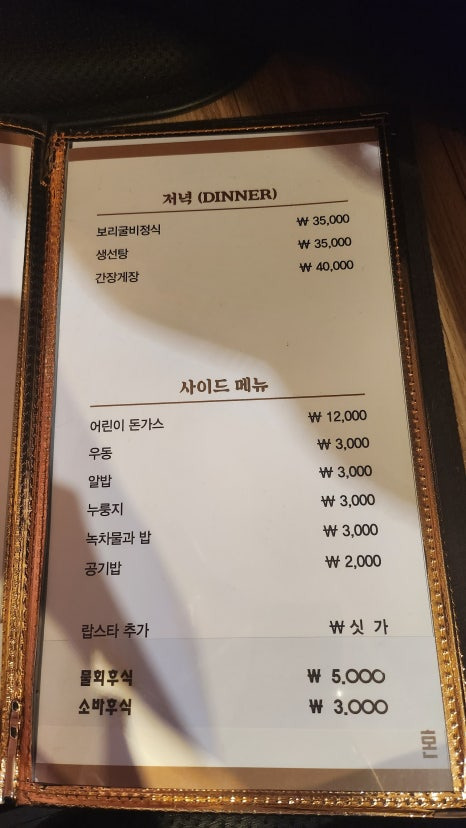 저녁 (DINNER)
보리굴비정식 ₩ 35,000
생선탕 ₩ 35,000
간장게장 ₩ 40,000
사이드 메뉴
어린이 돈가스 ₩ 12,000
우동 ₩ 3,000
알밥 ₩ 3,000
누룽지 ₩ 3,000
녹차물과 밥 ₩ 3,000
공기밥 ₩ 2,000
랍스타 추가 ₩ 싯 가
물회후식 ₩ 5.000
소바후식 ₩ 3.000
혼